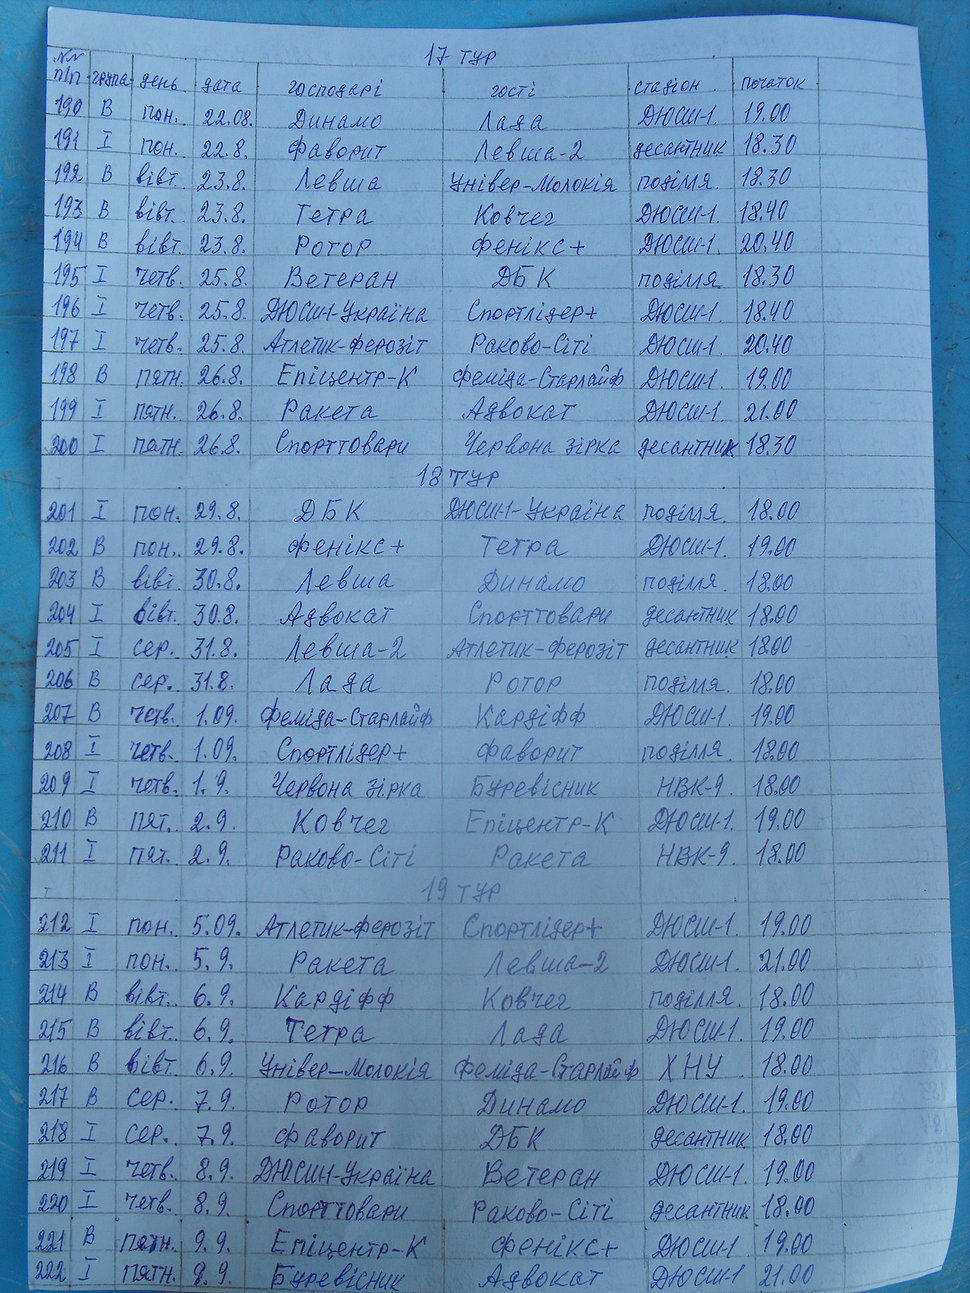 17 тур
№№ п/п група день дата господарі гості стадіон початок
190 В пон. 22.08. Динамо Лада ДЮСШ-1. 19.00
191 І пон. 22.8. Фаворит Левша-2 десантник 18.30
192 В вівт. 23.8. Левша Універ-Молокія поділля. 18.30
193 В вівт. 23.8. Тетра Ковчег ДЮСШ-1. 18.40
194 В вівт. 23.8. Ротор Фенікс+ ДЮСШ-1. 20.40
195 І четв. 25.8. Ветеран ДБК поділля. 18.30
196 І четв. 25.8. ДЮСШ-1-Україна Спортлідер+ ДЮСШ-1. 18.40
197 І четв. 25.8. Атлетик-Ферозіт Раково-Сіті ДЮСШ-1. 20.40
198 В пятн. 26.8. Епіцентр-К Феміда-Старлайф ДЮСШ-1. 19.00
199 І пятн. 26.8. Ракета Адвокат ДЮСШ-1. 21.00
200 І пятн. 26.8. Спорттовари Червона зірка десантник 18.30
18 тур
201 І пон. 29.8. ДБК ДЮСШ-1-Україна поділля. 18.00
202 В пон. 29.8. Фенікс+ Тетра ДЮСШ-1. 19.00
203 В вівт. 30.8. Левша Динамо поділля 18.00
204 І вівт. 30.8. Адвокат Спорттовари десантник 18.00
205 І сер. 31.8. Левша-2 Атлетик-Ферозіт десантник 18.00
206 В сер. 31.8. Лада Ротор поділля. 18.00
207 В четв. 1.09. Феміда-Старлайф Кардіфф ДЮСШ-1. 19.00
208 І четв. 1.09. Спортлідер+ Фаворит поділля 18.00
209 І четв. 1.9. Червона зірка Буревісник НВК-9. 18.00
210 В пят. 2.9. Ковчег Епіцентр-К ДЮСШ-1. 19.00
211 І пят. 2.9. Раково-Сіті Ракета НВК-9. 18.00
19 тур
212 І пон. 5.09. Атлетик-Ферозіт Спортлідер+ ДЮСШ-1. 19.00
213 І пон. 5.9. Ракета Левша-2 ДЮСШ-1. 21.00
214 В вівт. 6.9. Кардіфф Ковчег поділля. 18.00
215 В вівт. 6.9. Тетра Лада ДЮСШ-1. 19.00
216 В вівт. 6.9. Універ-Молокія Феміда-Старлайф ХНУ 18.00
217 В сер. 7.9. Ротор Динамо ДЮСШ-1. 19.00
218 І сер. 7.9. Фаворит ДБК десантник 18.00
219 І четв. 8.9. ДЮСШ-1-Україна Ветеран ДЮСШ-1. 19.00
220 І четв. 8.9. Спорттовари Раково-Сіті десантник 18.00
221 В пятн. 9.9. Епіцентр-К Фенікс+ ДЮСШ-1. 19.00
222 І пятн. 9.9. Буревісник Адвокат ДЮСШ-1 21.00